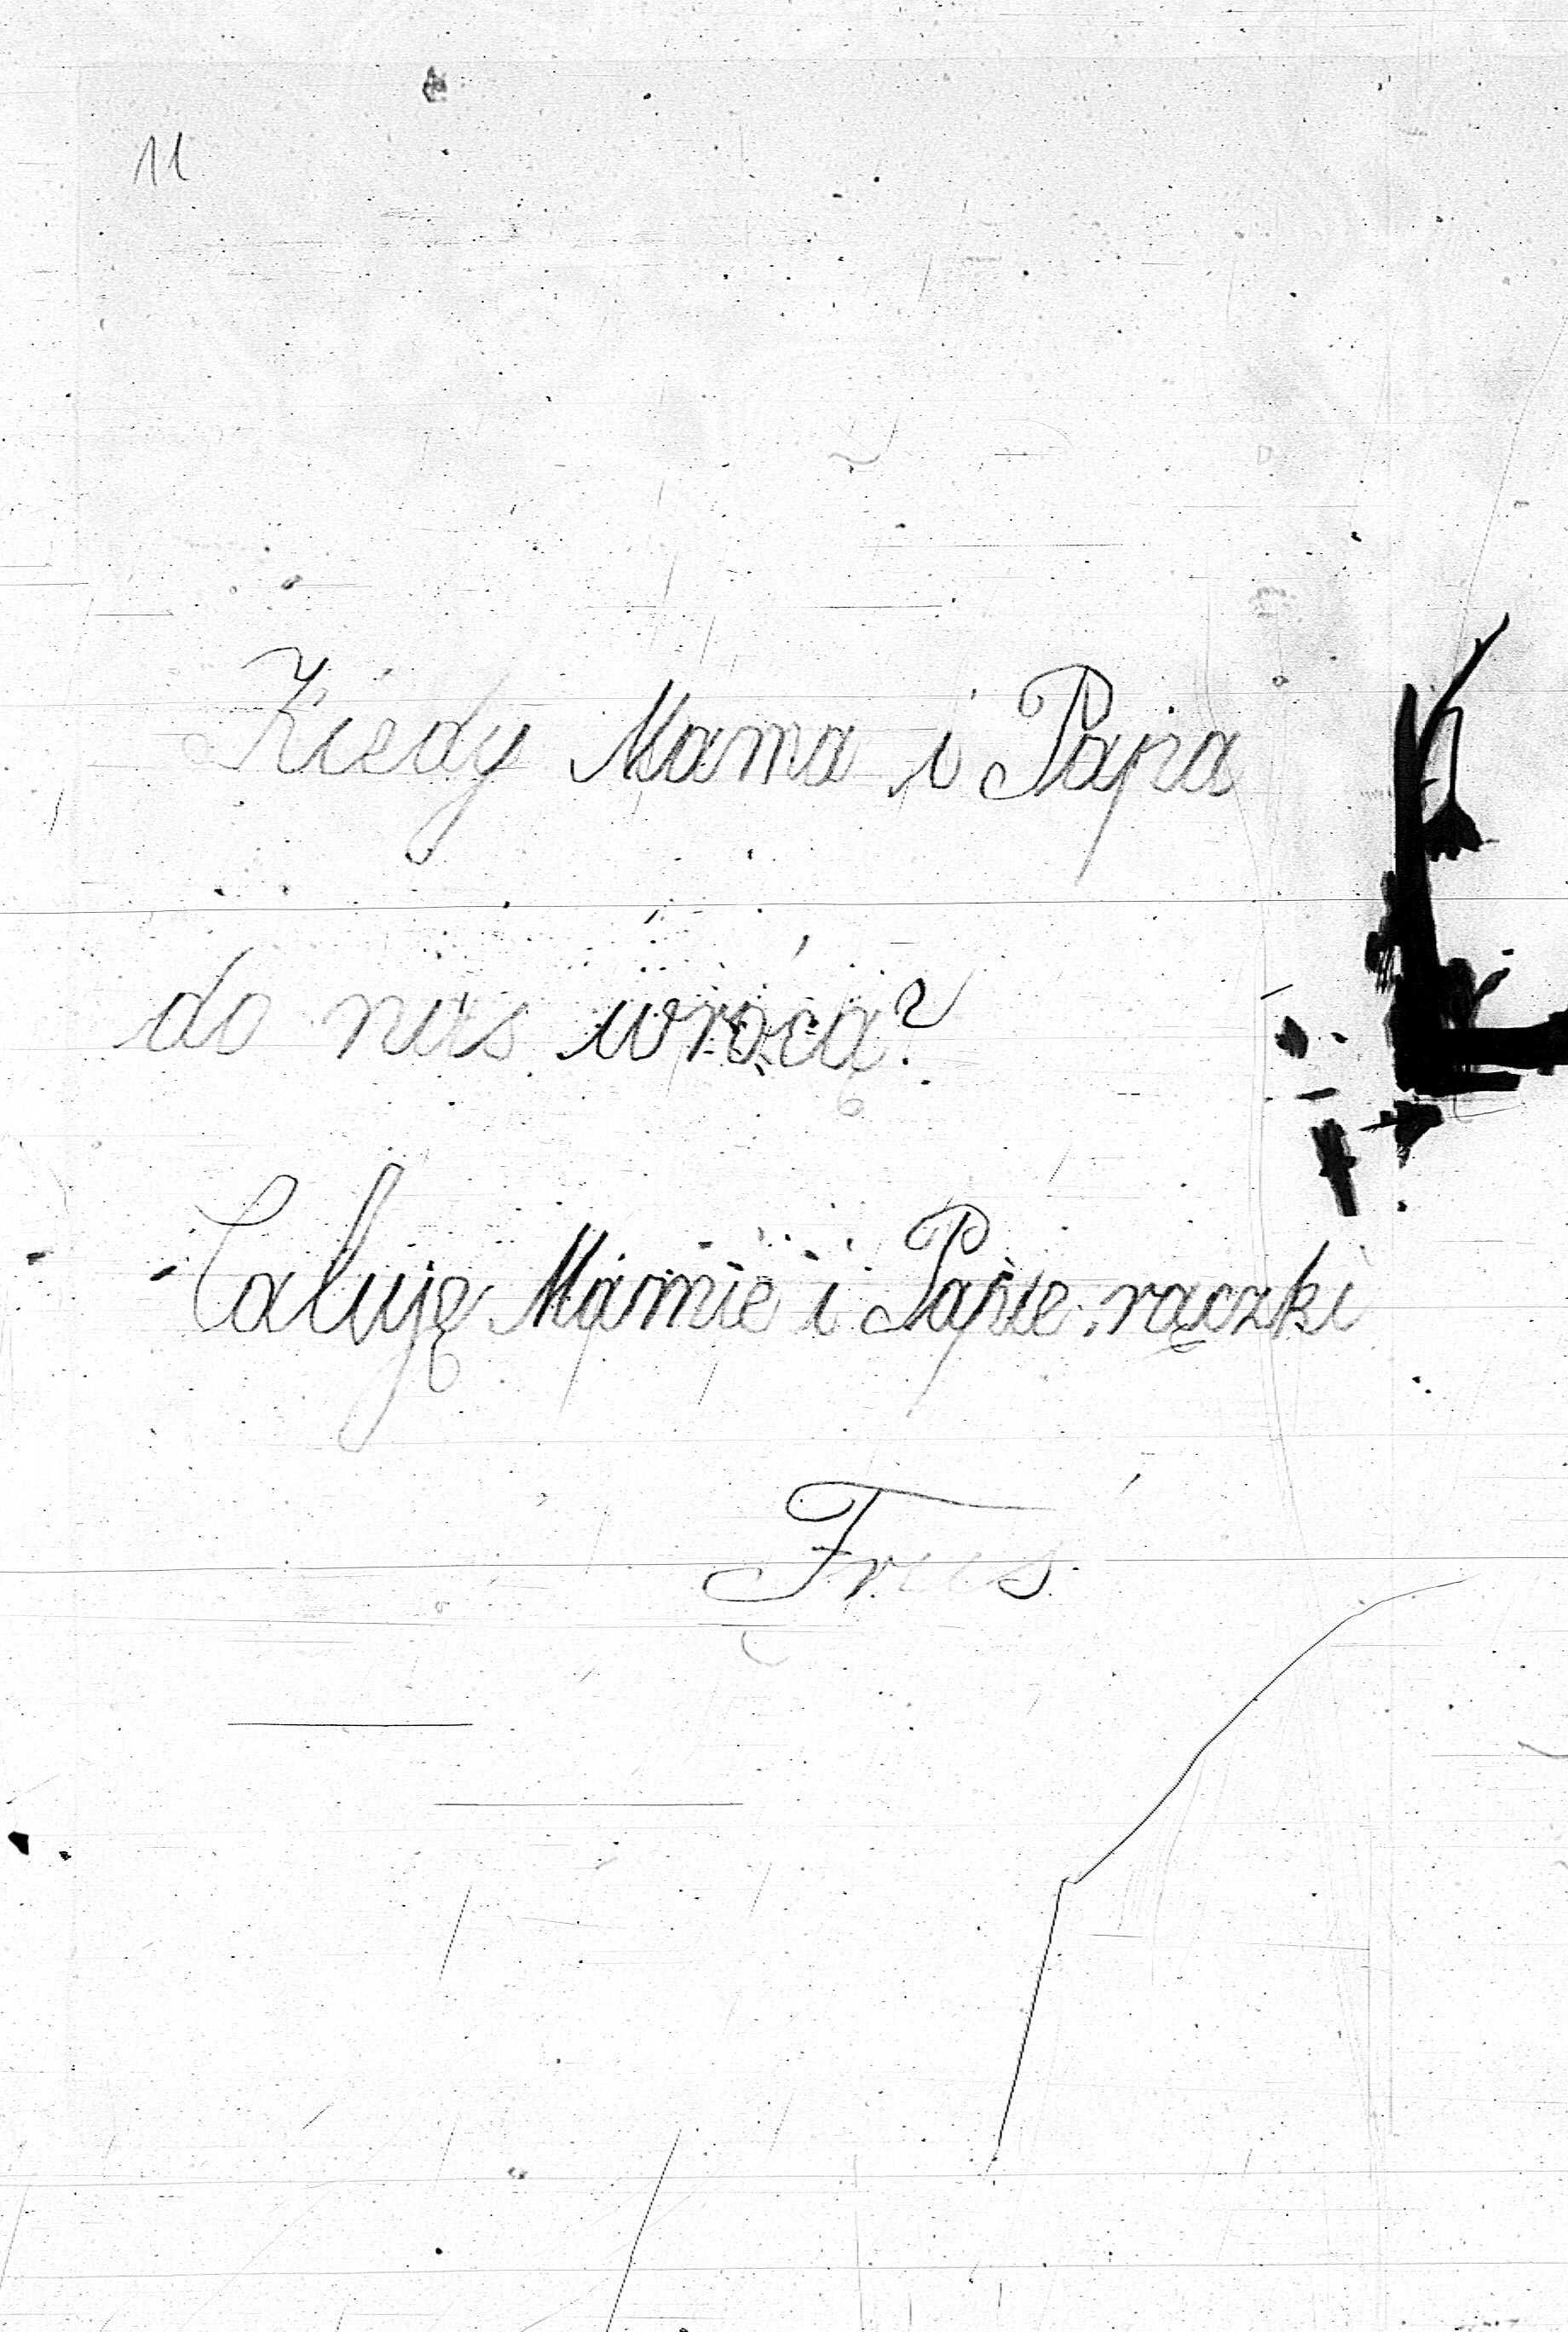 11
Kiedy Mama i Papa
do nas wrócą?
Całuję Mamie i Papie rączki